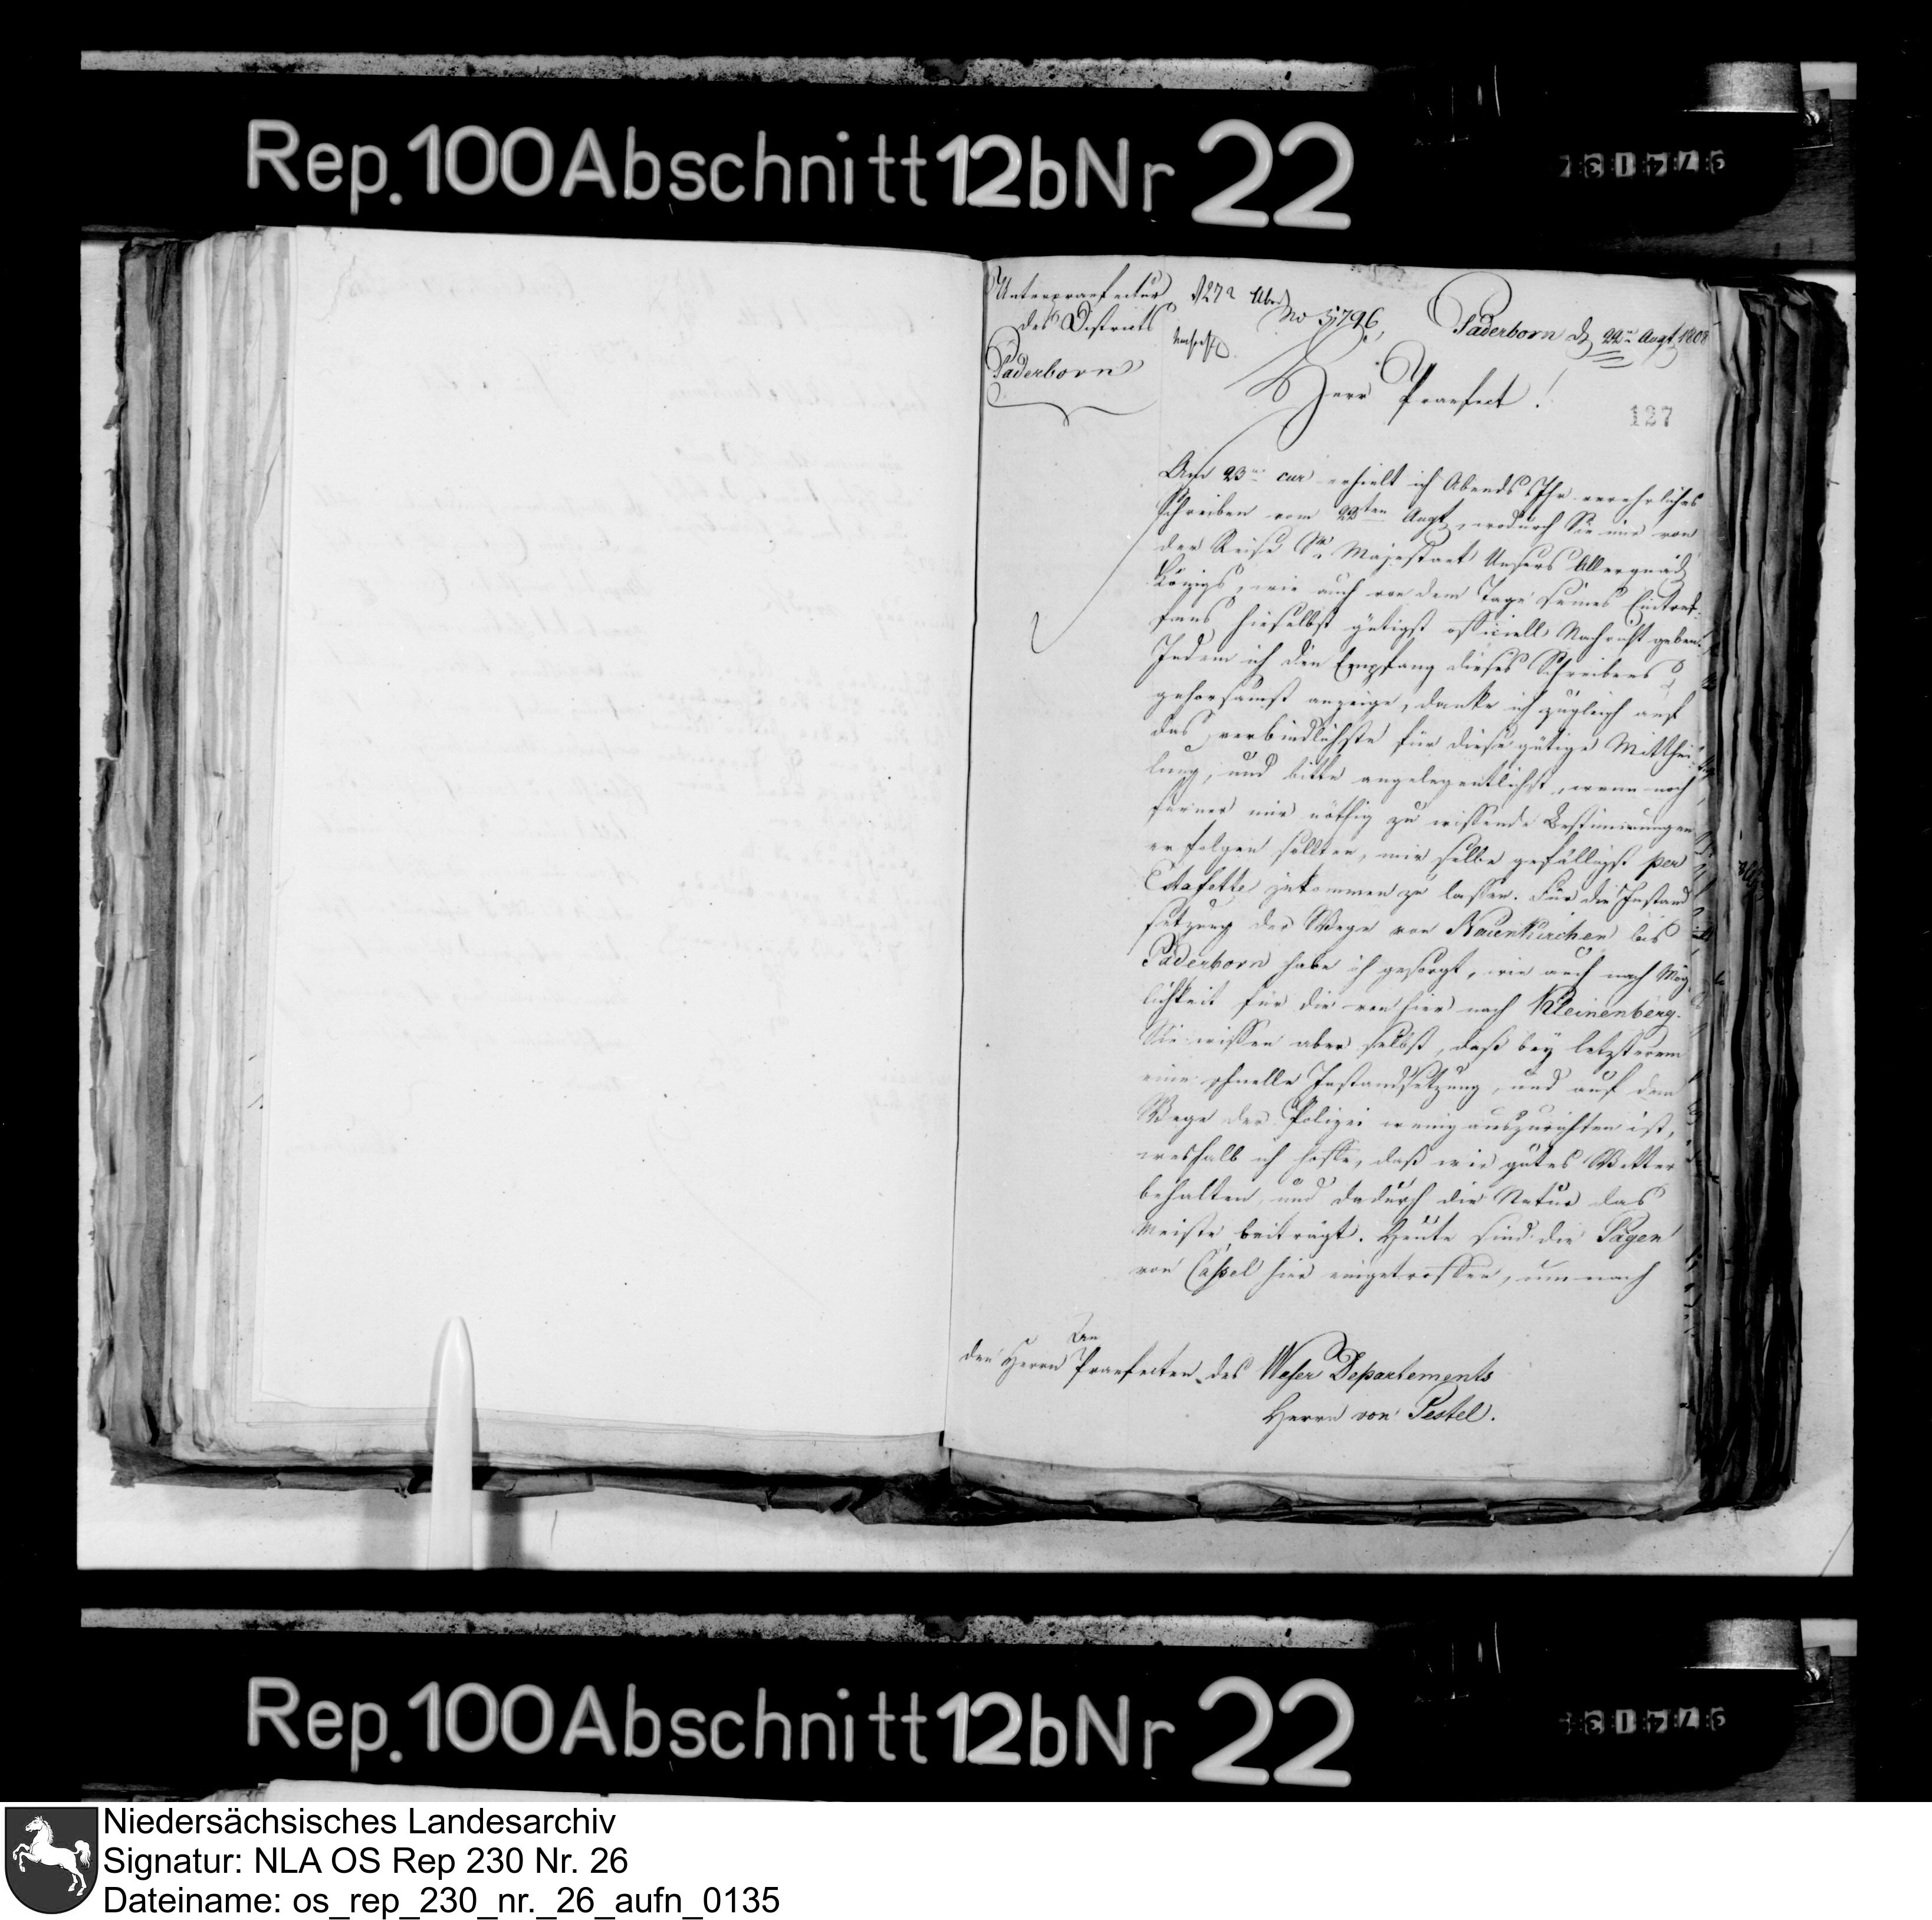 Rep. 100 Abschnitt 12b Nr 22
Unterpraefectur
des Districts
Paderborn
No 5796,
Paderborn d 22n Augt 1808
Herr Praefect!
127
Am 23n cur erhielt ich Abends Ihr verehrliches
Schreiben vom 22ten Augt, wodurch Sie mir von
der Reise Sr Majestaet Unsers Allergnäd
Königs, wie auch von dem Tage seines Eintref-
fens hieselbst gütigst officiell Nachricht geben.
Indem ich den Empfang dieses Schreibens
gehorsamst anzeige, danke ich zugleich auf
das verbindlichste für diese gütige Mitthei-
lung, und bitte angelegentlichst, wenn noch
ferner mir nöthig zu wissende Bestimmungen
erfolgen sollten, mir selbe gefälligst per
Estafette zukommen zu lassen. Für die Instand
setzung der Wege von Neuenkirchen bis
Paderborn habe ich gesorgt, wie auch nach Mög
lichkeit für die von hier nach Kleinenberg.
Sie wissen aber selbst, daß bey letzterem
eine schnelle Instandsetzung, und auf dem
Wege der Polizei wenig auszurichten ist,
weshalb ich hoffe, daß wir gutes Wetter
behalten, und dadurch die Natur das
Meiste beiträgt. Heute sind die Pagen
von Cassel hier eingetroffen, um nach
An
den Herrn Praefecten des Weser Departements
Herrn von Pestel.
Rep. 100 Abschnitt 12b Nr 22
Niedersächsisches Landesarchiv
Signatur: NLA OS Rep 230 Nr. 26
Dateiname: os_rep_230_nr._26_aufn_0135